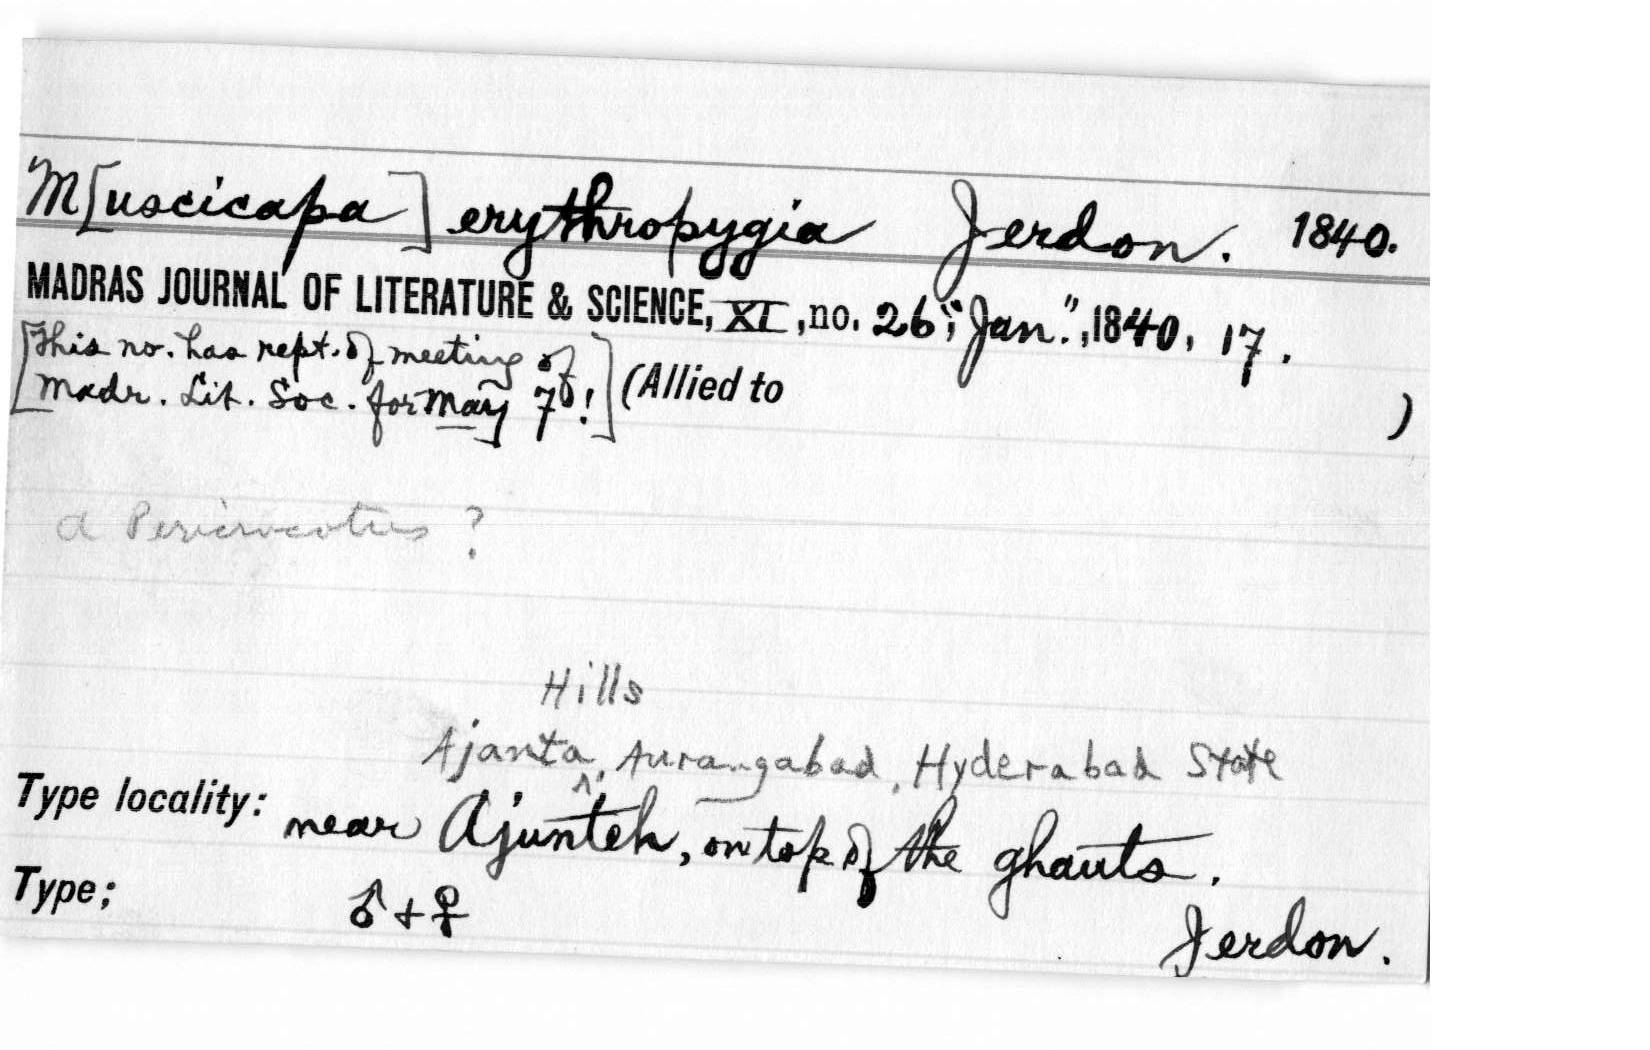 M[uscicapa] erythropygia Jerdon. 1840.
MADRAS JOURNAL OF LITERATURE & SCIENCE, XI, no. 26, "Jan.", 1840, 17.
[This no. has rept. of meeting of
Madr. Lit. Soc. for May 7th!] (Allied to )
a Pericrocotus ?
Hills
Ajanta ^, Aurangabad, Hyderabad State
Type locality: near Ajunteh, on top of the ghauts.
Type; ♂ + ♀
Jerdon.